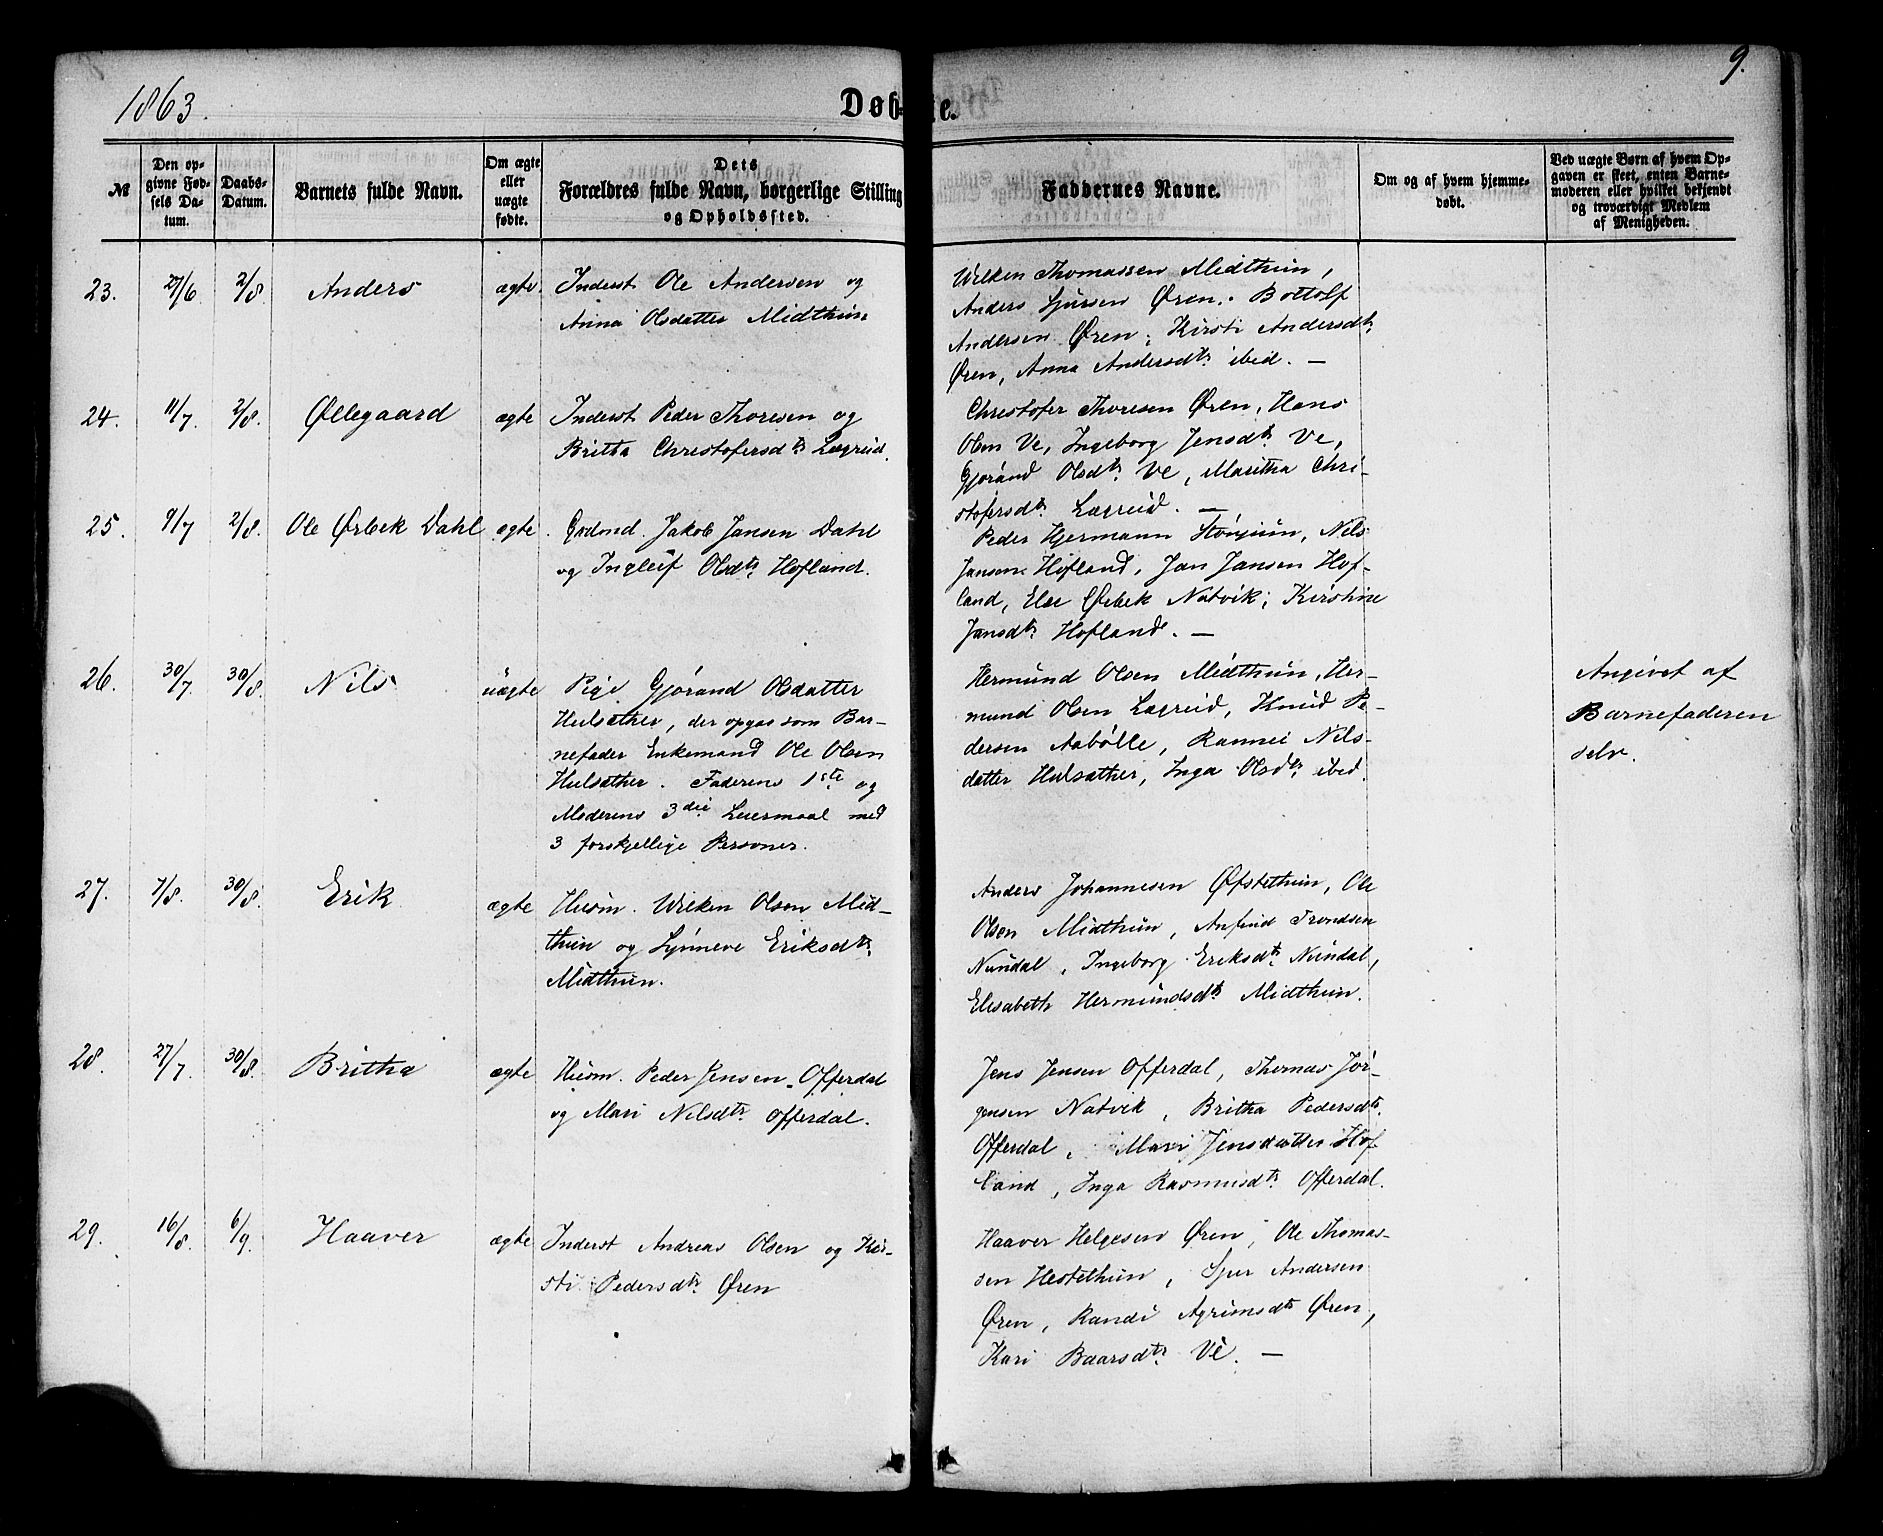 1863.
Døb-
te.
9.
№
Den op-
givne Fød-
sels Da-
tum.
Daabs-
Datum.
Barnets fulde Navn.
Om ægte
eller
uægte
fødte.
Dets
Forældres fulde Navn, borgerlige Stilling
og Opholdssted.
Faddernes Navne.
Om og af hvem hjemme-
døbt.
Ved uægte Børn af hvem Op-
gaven er skeet, enten Barne-
moderen eller hvilket bekjendt
og troværdigt Medlem
af Menigheden.
23. 27/6 2/8 Anders ægte. Inderst Ole Andersen og
Anna Olsdatter Midthun.
Wilken Thomassen Midthun,
Anders Sjursen Øren. Bottolf
Andersen Øren, Kirsti Andersdtr
Øren, Anna Andersdtr ibid. —
24. 11/7. 2/8. Øllegaard ægte Inderst Peder Thoresen og
Britha Christofersdtr Lægreid.
Christofer Thoresen Øren, Hans
Olsen Ve, Ingeborg Jensdtr Ve,
Gjørand Olsdtr Ve, Maritha Chri-
stofersdtr Lægreid. —
25. 9/7 2/8. Ole Ørbek Dahl ægte. Grdmd. Jakob Jansen Dahl
og Ingleif Olsdtr Hofland.
Peder Hjermann Stønjum, Nils
Jansen Hofland, Jan Jansen Hof-
land, Else Ørbek Natvik, Kirstine
Jansdtr Hofland. —
26. 30/7. 30/8. Nils uægte Pige Gjørand Olsdatter
Hulsæther, der opgav som Bar-
nefader Enkemand Ole Olsen
Hulsæther. Faderens 1ste og
Moderens 3die Leiermaal med
3 forskjellige Personer.
Hermund Olsen Midthun, Her-
mund Olsen Lægreid, Knud Pe-
dersen Aabølle, Rannei Nils-
datter Hulsæther, Inga Olsdtr ibid.
Angivet af
Barnefaderen
selv.
27. 7/8. 30/8. Erik ægte Husm. Wilken Olsen Mid-
thun og Synneve Eriksdtr
Midthun.
Anders Johannesen Øfstethun, Ole
Olsen Midthun, Anfind Trondsen
Nundal, Ingeborg Eriksdtr Nundal,
Elisabeth Hermundsdtr Midthun.
28. 27/7. 30/8. Britha ægte Husm. Peder Jensen Offerdal
og Mari Nilsdtr Offerdal.
Jens Jensen Offerdal, Thomas Jør-
gensen Natvik, Britha Pedersdtr.
Offerdal, Mari Jensdatter Hof
land, Inga Rasmusdtr Offerdal.
29. 16/8. 6/9. Haaver ægte Inderst Andreas Olsen og Kir-
sti Pedersdtr Øren
Haaver Helgesen Øren, Ole Thomas-
sen Hestethun, Sjur Andersen
Øren, Randi Agrimsdtr Øren,
Kari Baarsdtr Ve. —